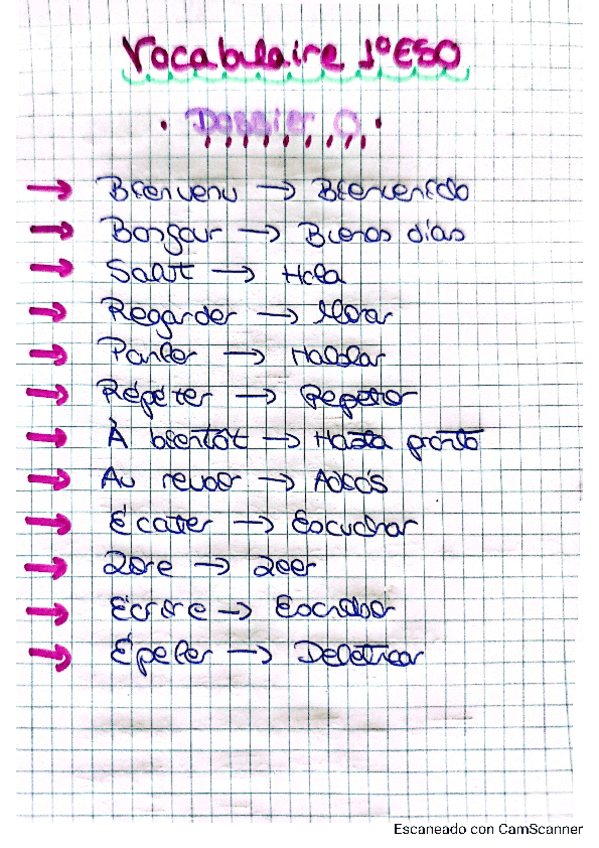 Vocabulaire 1º ESO
Dossier 0
→ Bienvenu → Bienvenido
→ Bonjour → Buenos días
→ Salut → Hola
→ Regarder → Mirar
→ Parler → Hablar
→ Répéter → Repetir
→ À bientôt → Hasta pronto
→ Au revoir → Adiós
→ Écouter → Escuchar
→ Lire → Leer
→ Écrire → Escribir
→ Épeler → Deletrear
Escaneado con CamScanner